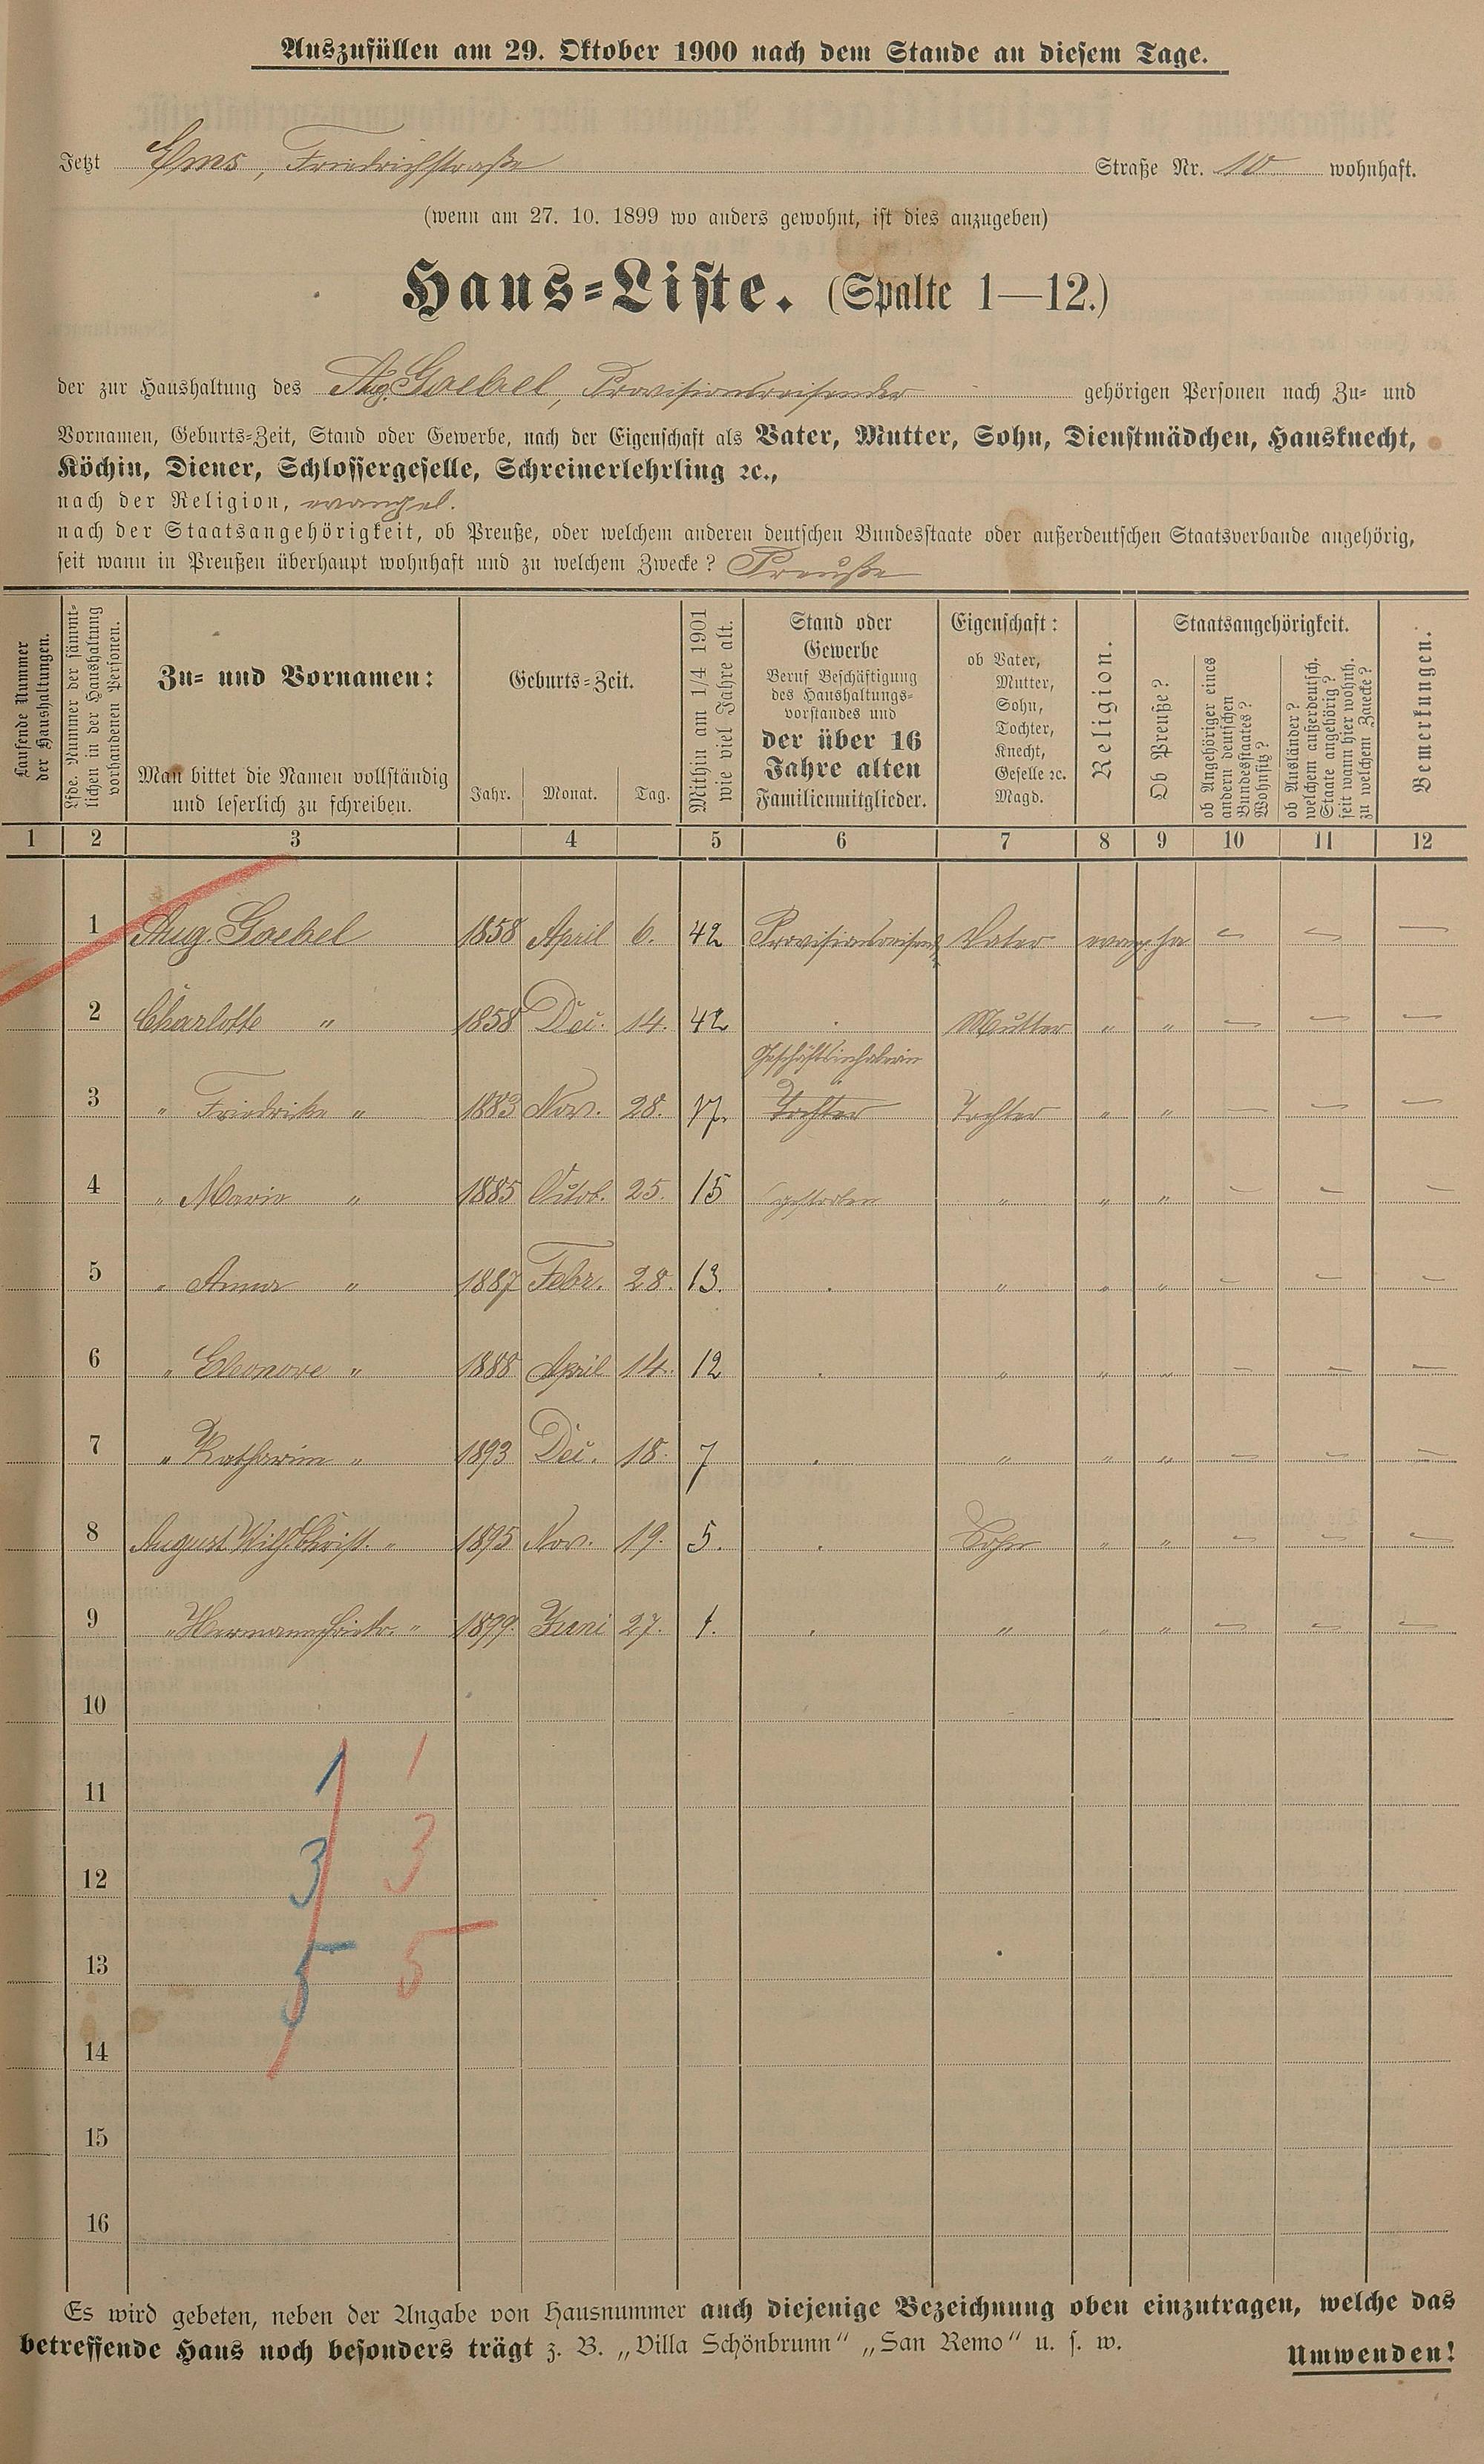 Auszufüllen am 29. Oktober 1900 nach dem Stande an diesem Tage.
Jetzt Ems, Friedrichstraße Straße Nr. 10 wohnhaft.
(wenn am 27. 10. 1899 wo anders gewohnt, ist dies anzugeben)
Haus-Liste. (Spalte 1—12.)
der zur Haushaltung des Aug. Goebel, Provisionsreisender gehörigen Personen nach Zu- und
Vornamen, Geburts-Zeit, Stand oder Gewerbe, nach der Eigenschaft als Vater, Mutter, Sohn, Dienstmädchen, Hausknecht,
Köchin, Diener, Schlossergeselle, Schreinerlehrling ꝛc.,
nach der Religion, evangel.
nach der Staatsangehörigkeit, ob Preuße, oder welchem anderen deutschen Bundesstaate oder außerdeutschen Staatsverbande angehörig,
seit wann in Preußen überhaupt wohnhaft und zu welchem Zwecke? Preuße
Laufende Nummer
der Haushaltungen.
Lfde. Nummer der sämmt-
lichen in der Haushaltung
vorhandenen Personen.
Zu- und Vornamen:
Man bittet die Namen vollständig
und leserlich zu schreiben.
Geburts-Zeit.
Jahr. Monat. Tag.
Mithin am 1/4 1901
wie viel Jahre alt.
Stand oder
Gewerbe
Beruf Beschäftigung
des Haushaltungs-
vorstandes und
der über 16
Jahre alten
Familienmitglieder.
Eigenschaft:
ob Vater,
Mutter,
Sohn,
Tochter,
Knecht,
Geselle ꝛc.
Magd.
Religion.
Staatsangehörigkeit.
Ob Preuße?
ob Angehöriger eines
andern deutschen
Bundesstaates?
Wohnsitz?
ob Ausländer?
welchem außerdeutsch.
Staate angehörig?
seit wann hier wohnh.
zu welchem Zwecke?
Bemerkungen.
1 2 3 4 5 6 7 8 9 10 11 12
1 Aug. Goebel 1858 April 6. 42 Provisionsreisend. Vater evang. ja — — —
2 Charlotte " 1858 Dec. 14. 42 Mutter " " — — —
Geschäftsinhaberin
3 " Friedrike " 1883 Nov. 28. 17. Tochter Tochter " " — — —
4 " Marie " 1885 Octob. 25. 15 gestorben " " " — — —
5 " Anna " 1887 Febr. 28. 13. " " " — — —
6 " Eleonore " 1888 April 14. 12 " " " — — —
7 " Katharine " 1893 Dec. 18. 7 " " " — — —
8 August Wilh. Christ. " 1895 Nov. 19. 5. Sohn " " — — —
9 " Hermann Friedr. " 1899. Juni 27. 1. " " " — — —
10
11
1 1
12
3 3
13
5 5
14
15
16
Es wird gebeten, neben der Angabe von Hausnummer auch diejenige Bezeichnung oben einzutragen, welche das
betreffende Haus noch besonders trägt z. B. „Villa Schönbrunn“ „San Remo“ u. s. w.
Umwenden!